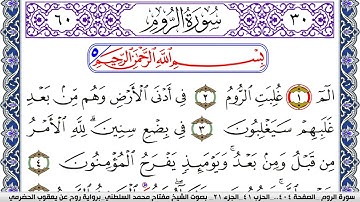 ٣٠ سُورَةُ الرُّومِ ٦٠
بِسْمِ ٱللَّهِ ٱلرَّحْمَٰنِ ٱلرَّحِيمِ ٥
الٓمٓ ١ غُلِبَتِ ٱلرُّومُ ٢ فِىٓ أَدْنَى ٱلْأَرْضِ وَهُم مِّنۢ بَعْدِ
غَلَبِهِمْ سَيَغْلِبُونَ ٣ فِى بِضْعِ سِنِينَۗ لِلَّهِ ٱلْأَمْرُ
مِن قَبْلُ وَمِنۢ بَعْدُۚ وَيَوْمَئِذٍ يَفْرَحُ ٱلْمُؤْمِنُونَ ٤
سورة الروم الصفحة ٤٠٤ الحزب ٤١ الجزء ٢١ بصوت الشيخ مفتاح محمد السلطني برواية روح عن يعقوب الحضرمي